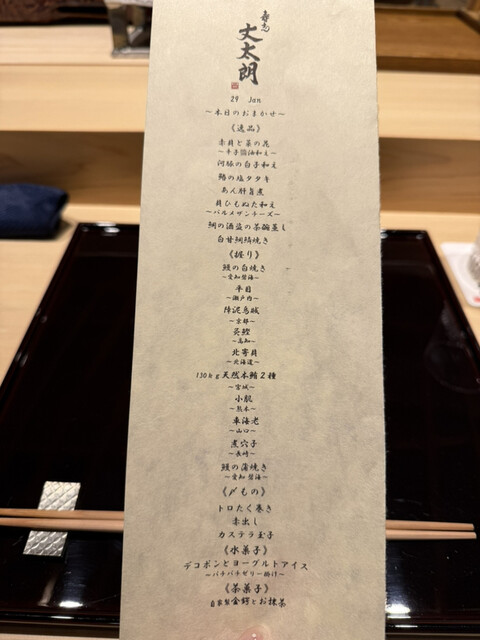 寿志
丈太朗
29 Jan
〜本日のおまかせ〜
《逸品》
赤貝と菜の花
〜辛子醤油和え〜
河豚の白子和え
鰆の塩タタキ
あん肝旨煮
貝ひもぬた和え
〜パルメザンチーズ〜
鯛の酒盗の茶碗蒸し
白甘鯛鱗焼き
《握り》
鰻の白焼き
〜愛知 碧海〜
平目
〜瀬戸内〜
障泥烏賊
〜京都〜
炙鰹
〜高知〜
北寄貝
〜北海道〜
130kg天然本鮪2種
〜宮城〜
小肌
〜熊本〜
車海老
〜山口〜
煮穴子
〜長崎〜
鰻の蒲焼き
〜愛知 碧海〜
《〆もの》
トロたく巻き
赤出し
カステラ玉子
《水菓子》
デコポンとヨーグルトアイス
〜パチパチゼリー掛け〜
《茶菓子》
自家製金鍔とお抹茶